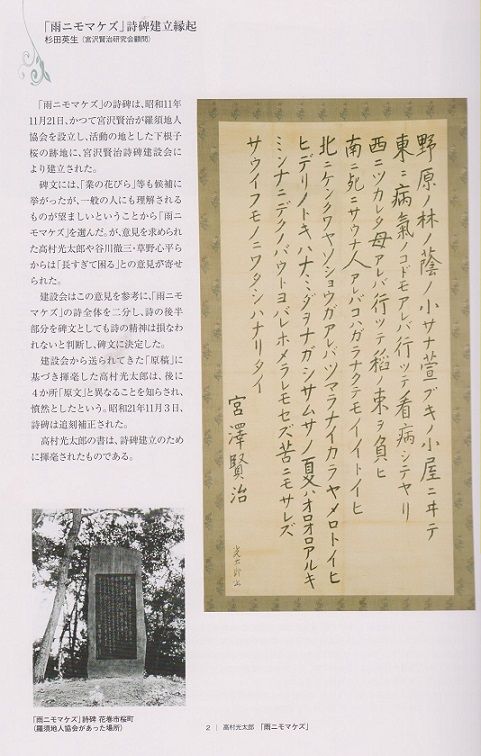 「雨ニモマケズ」詩碑建立縁起
杉田英生（宮沢賢治研究会顧問）
「雨ニモマケズ」の詩碑は、昭和11年
11月21日、かつて宮沢賢治が羅須地人
協会を設立し、活動の地とした下根子
桜の跡地に、宮沢賢治詩碑建設会に
より建立された。
碑文には、「業の花びら」等も候補に
挙がったが、一般の人にも理解される
ものが望ましいということから「雨ニ
モマケズ」を選んだ。が、意見を求められ
た高村光太郎や谷川徹三・草野心平ら
からは「長すぎて困る」との意見が寄せ
られた。
建設会はこの意見を参考に、「雨ニモ
マケズ」の詩全体を二分し、詩の後半
部分を碑文としても詩の精神は損なわ
れないと判断し、碑文に決定した。
建設会から送られてきた「原稿」に
基づき揮毫した高村光太郎は、後に
４か所「原文」と異なることを知らされ、
憤然としたという。昭和21年11月３日、
詩碑は追刻補正された。
高村光太郎の書は、詩碑建立のため
に揮毫されたものである。
野原ノ林ノ蔭ノ小サナ萱ブキノ小屋ニヰテ
東ニ病氣ノコドモアレバ行ッテ看病シテヤリ
西ニツカレタ母アレバ行ッテ稲ノ束ヲ負ヒ
南ニ死ニサウナ人アレバコハガラナクテモイイトイヒ
北ニケンクワヤソショウガアレバツマラナイカラヤメロトイヒ
ヒデリノトキハナミダヲナガシサムサノ夏ハオロオロアルキ
ミンナニデクノバウトヨバレホメラレモセズ苦ニモサレズ
サウイフモノニワタシハナリタイ
宮澤賢治
光太郎
「雨ニモマケズ」詩碑 花巻市桜町
（羅須地人協会があった場所）
2 ｜ 高村光太郎 「雨ニモマケズ」